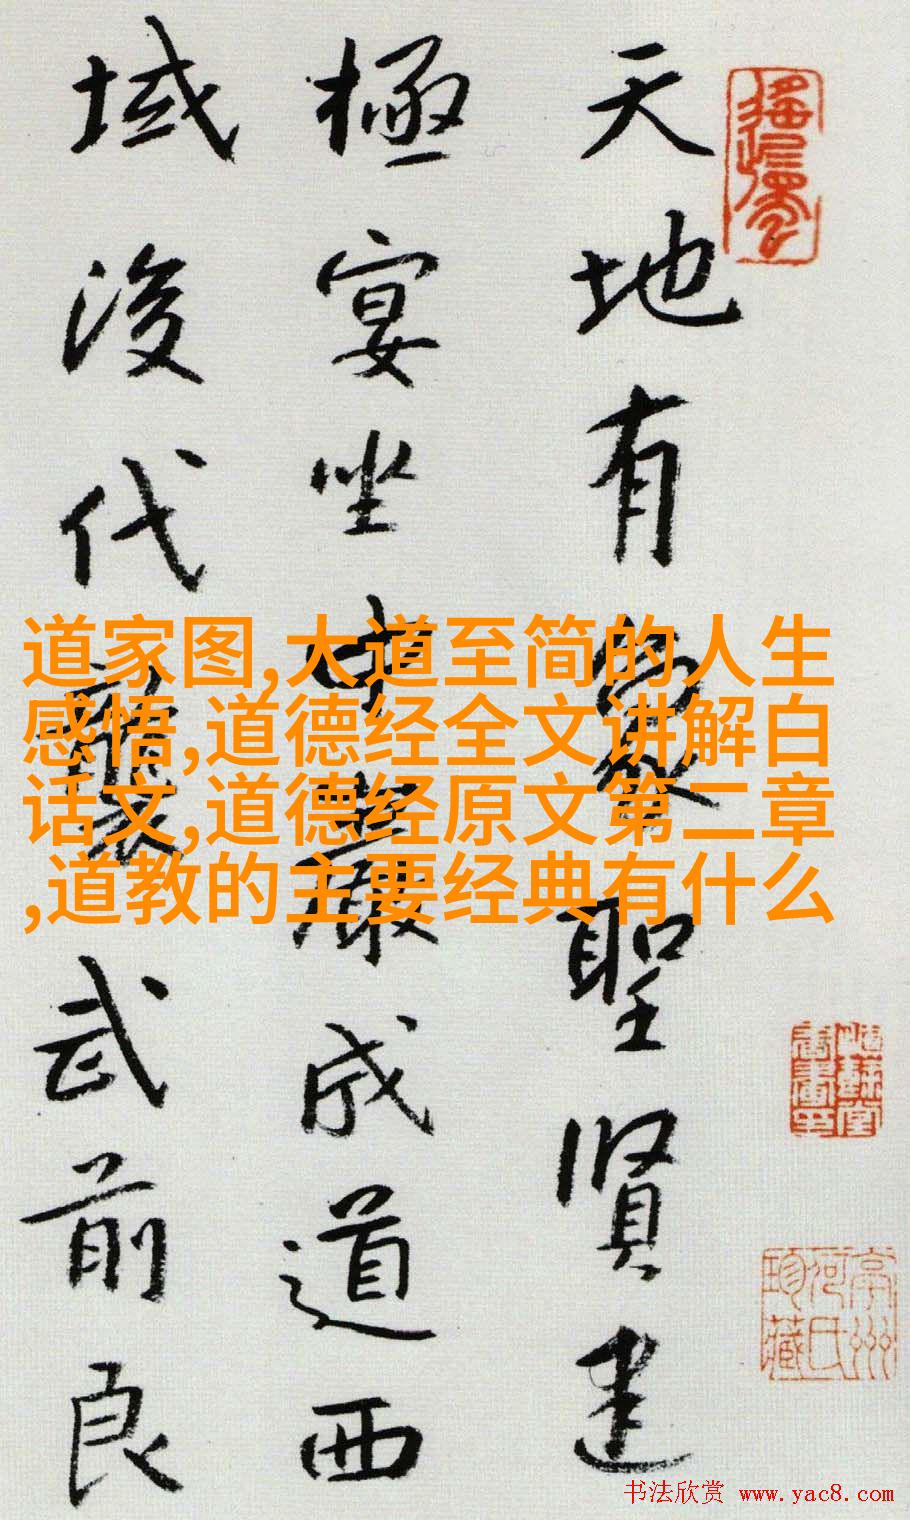 天地有象聖賢建
極宴坐中巖成道西
域後代襲武前良
道家图,大道至简的人生
感悟,道德经全文讲解白
话文,道德经原文第二章
,道教的主要经典有什么
书法欣赏 www.yac8.com